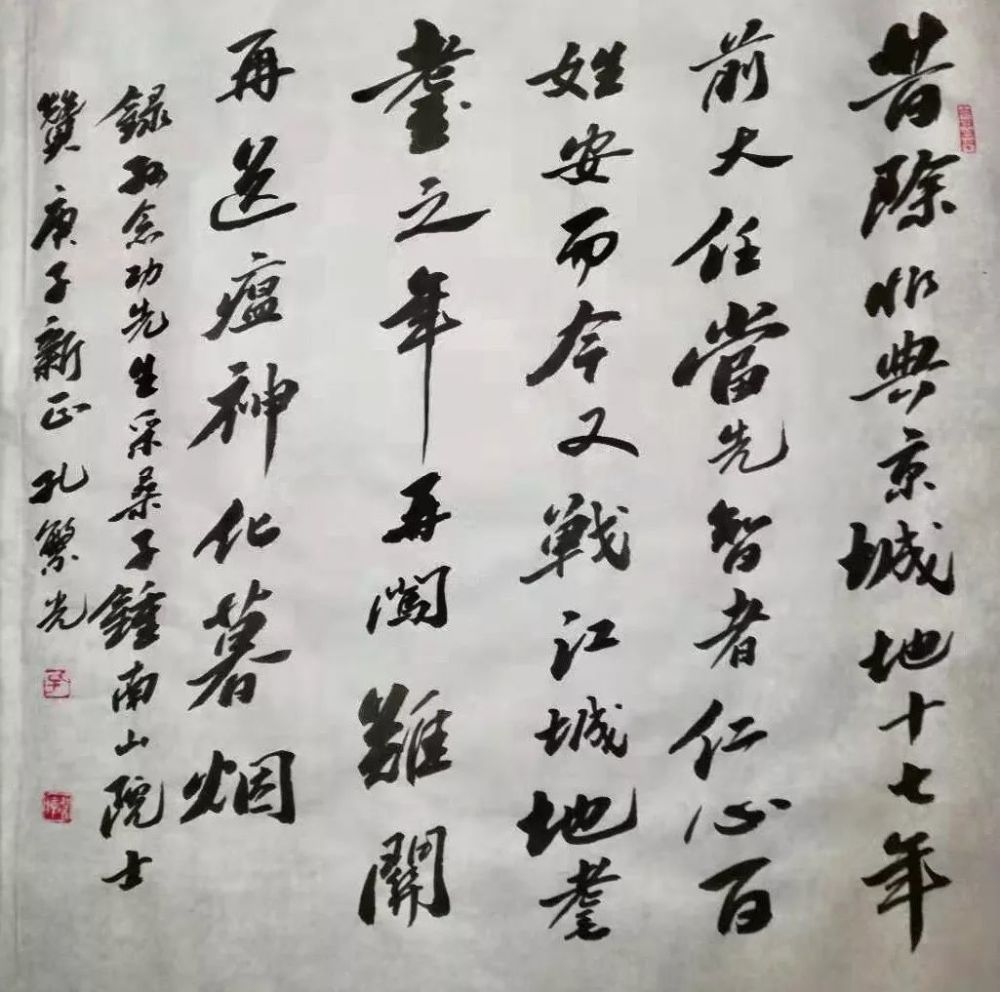 昔除非典京城地十七年
前大任當先智者仁心百
姓安而今又戰江城地耄
耋之年再闖難關
再送瘟神化暮烟
録孙念功先生采桑子鍾南山院士
贊庚子新正孔繁光